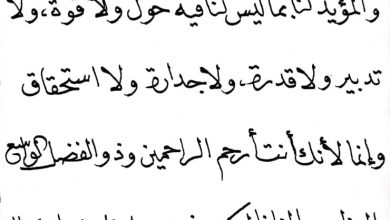 والمؤيد لنا بما ليس لنا فيه حول ولا قوة، ولا
تدبير ولا قدرة، ولا جدارة ولا استحقاق
وإنما لأنك أنت أرحم الراحمين وذو الفضل الواسع